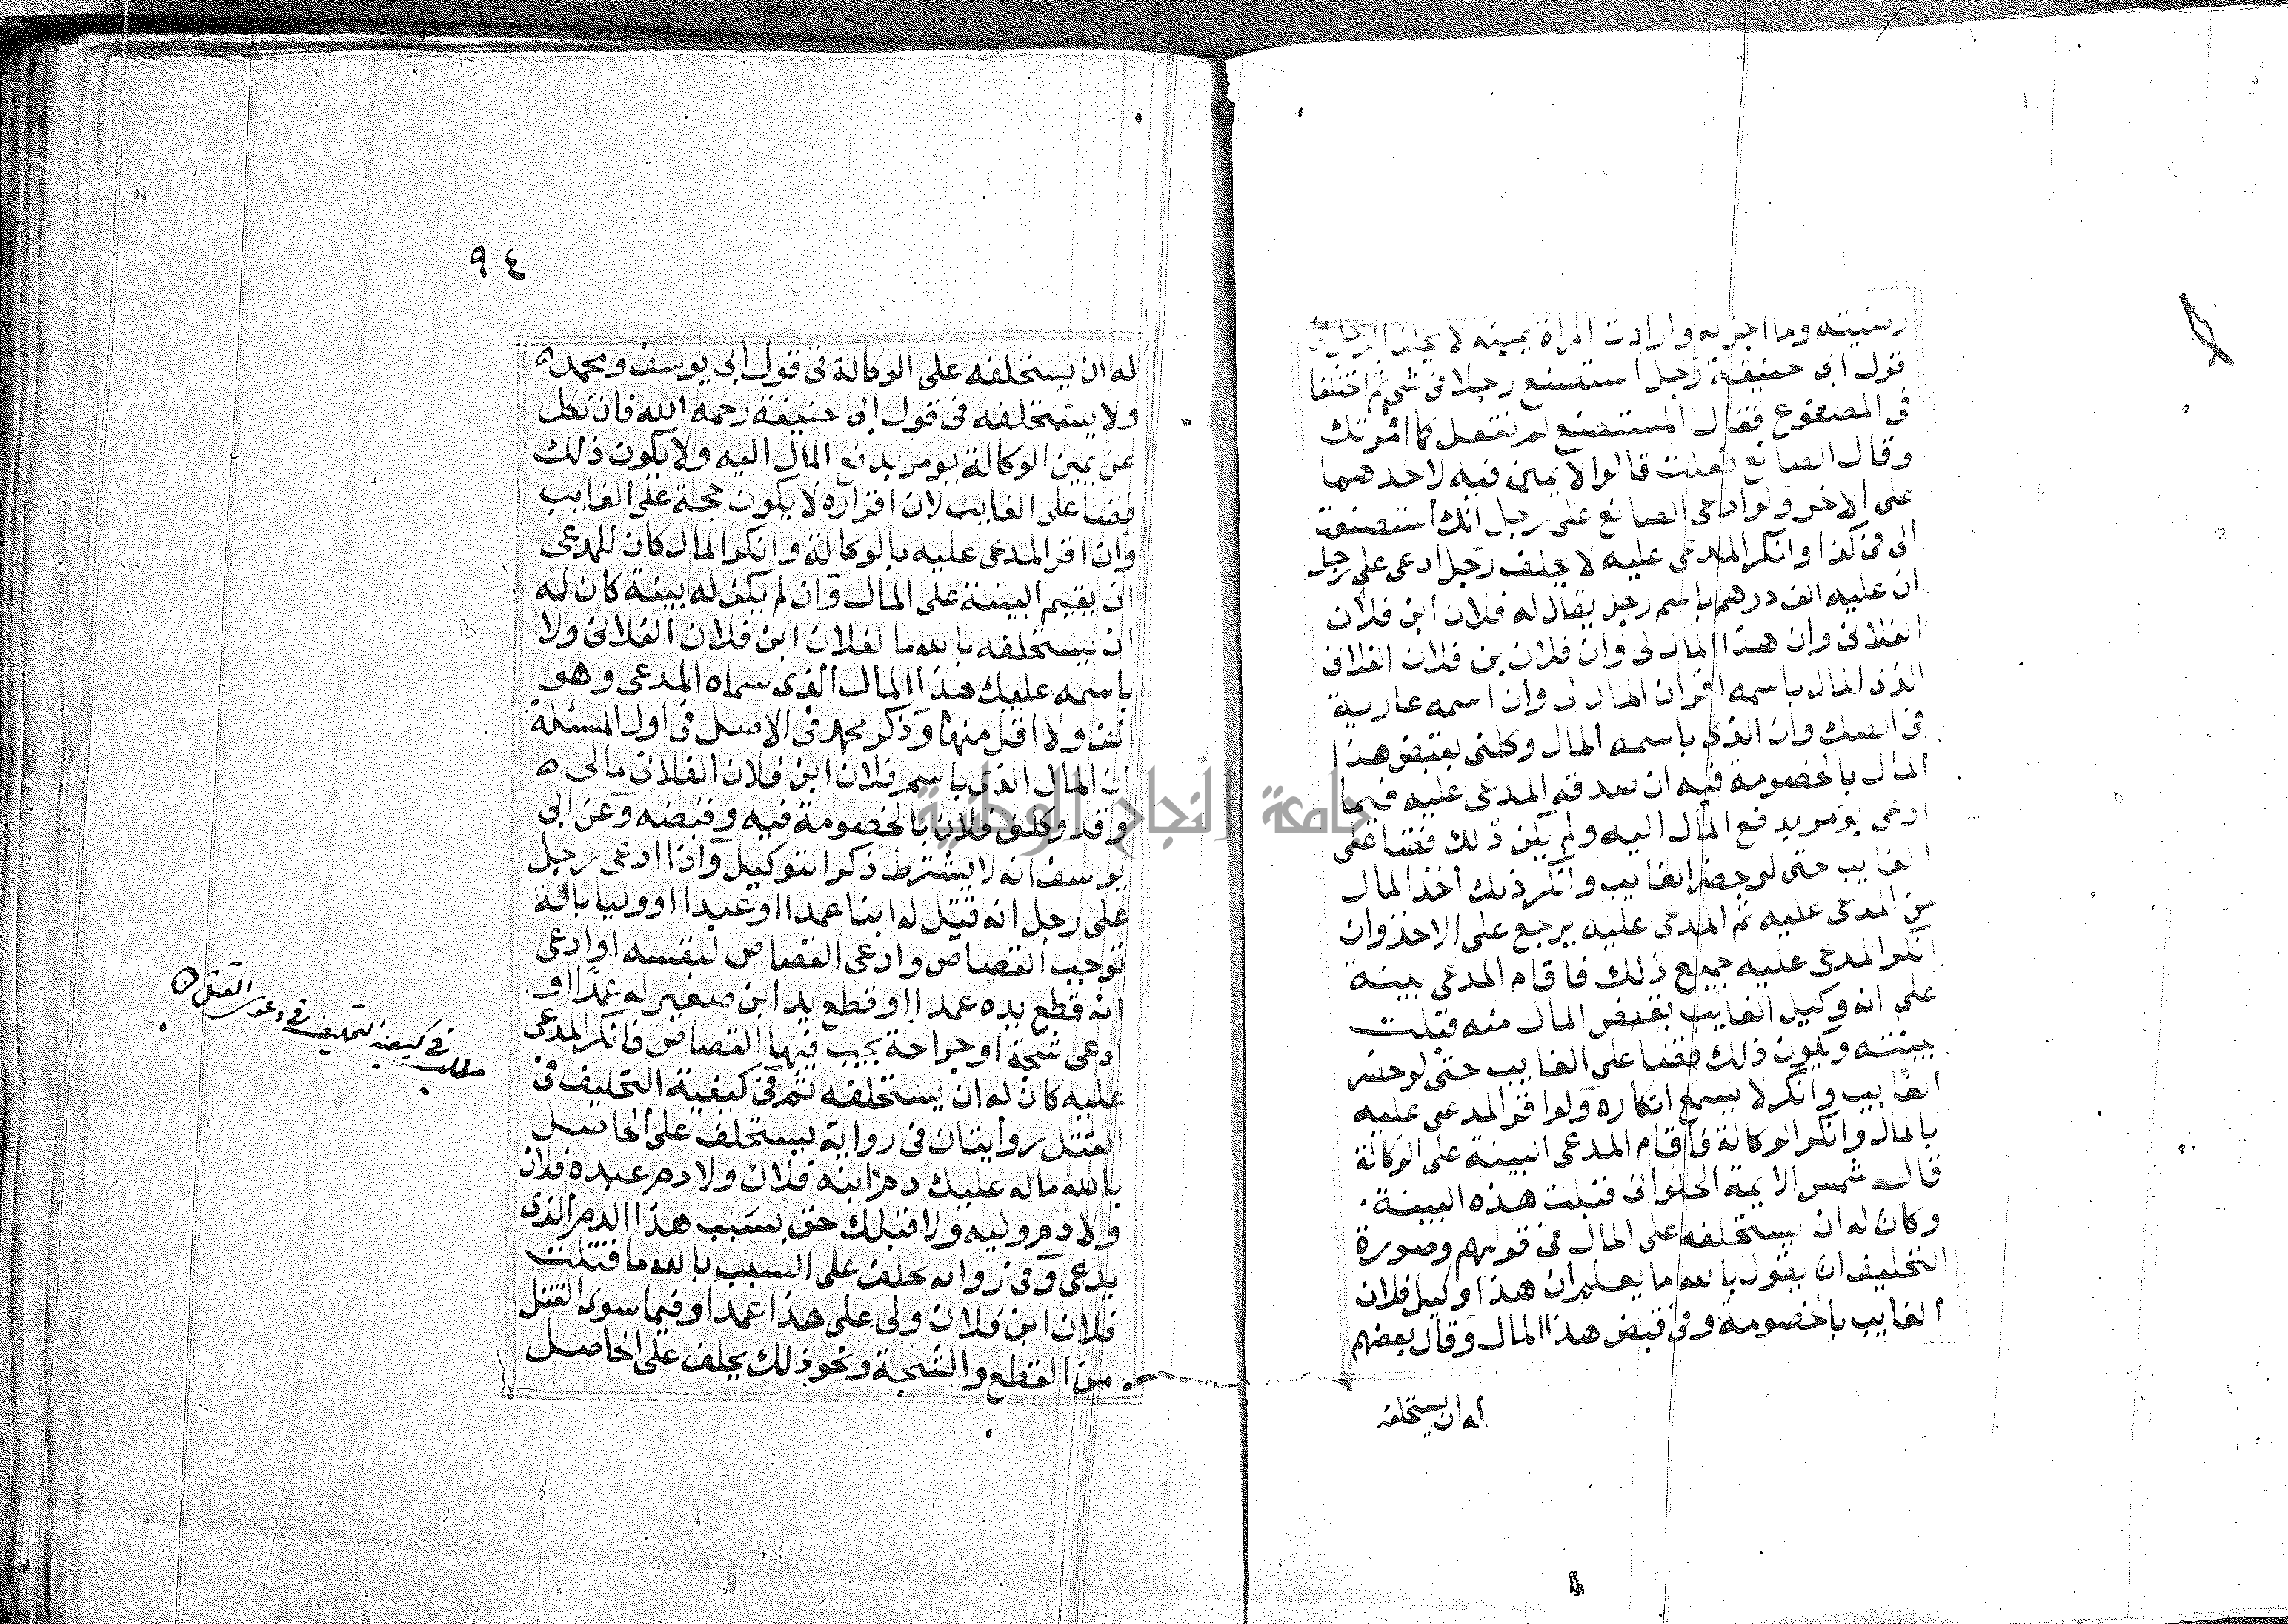 رضيته وما اجزته وارادت المراة يمينه لا يحلف الرجل في
قول ابى حنيفة رجل استصنع رجلا فى شى ثم اختلفا
فى المصنوع فقال المستصنع لم تفعل كما امرتك
وقال الصانع فعلت قالوا لا يمين فيه لاحدهما
على الاخر ولو ادعى الصانع على رجل انك استصنعت
الى فى كذا وانكر المدعى عليه لا يحلف رجل ادعى على رجل
ان عليه الف درهم باسم رجل يقال له فلان ابن فلان
الفلانى وان هذا المال لى وان فلان بن فلان الفلانى
الذى المال باسمه اقر ان المال لى وان اسمه عارية
فى الصك وان الذى باسمه المال وكلنى بقبض هذا
المال بالخصومة فيه ان صدقه المدعى عليه فيما
ادعى يومر بدفع المال اليه ولم يكن ذلك قضا على
الغايب حتى لو حضر الغايب وانكر ذلك اخذ المال
من المدعى عليه ثم المدعى عليه يرجع على الاخذ وان
انكر المدعى عليه جميع ذلك فاقام المدعى بينة
على انه وكيل الغايب بقبض المال منه قبلت
بينته ويكون ذلك قضا على الغايب حتى لو حضر
الغايب وانكر لا يسمع انكاره ولو اقر المدعى عليه
بالمال وانكر الوكالة فاقام المدعى البينة على الوكالة
قال شمس الايمة الحلوانى قبلت هذه البينة
وكان له ان يستحلفه على المال فى قولهم وصورة
التحليف ان يقول بالله ما يعلم ان هذا وكيل فلان
الغايب بالخصومة وفى قبض هذا المال وقال بعضهم
له ان يستحلفه
٩٤
له ان يستحلفه على الوكالة فى قول ابى يوسف ومحمد ه
ولا يستحلفه فى قول ابى حنيفة رحمه الله فان نكل
عن يمين الوكالة يومر بدفع المال اليه ولا يكون ذلك
قضا على الغايب لان اقراره لا يكون حجة على الغايب
وان اقر المدعى عليه بالوكالة وانكر المال كان للمدعى
ان يقيم البينة على المال وان لم يكن له بينة كان له
ان يستحلفه بالله ما لفلان ابن فلان الفلانى ولا
باسمه عليك هذا المال الذى سماه المدعى وهو
الف ولا اقل منها وذكر محمد فى الاصل فى اول المسئلة
ان المال الذى باسم فلان ابن فلان الفلانى مالى ه
وقد وكلنى فلان بالخصومة فيه وقبضه وعن ابى
يوسف انه لا يشترط ذكر التوكيل واذا ادعى رجل
على رجل انه قتل له ابنا عمدا او عبدا او وليا بالة
توجب القصاص وادعى القصاص لنفسه او ادعى
انه قطع يده عمدا او قطع يد ابن صغير له عمدا او
ادعى شجة او جراحة يجب فيها القصاص فانكر المدعى
عليه كان له ان يستحلفه ثم فى كيفية التحليف فى
القتل روايتان فى رواية يستحلف على الحاصل
بالله ما له عليك دم ابنه فلان ولا دم عبده فلان
ولا دم وليه ولا قبلك حق بسبب هذا الدم الذى
يدعى وفى رواية يحلف على السبب بالله ما قتلت
فلان ابن فلان ولى على هذا عمدا وفيما سوى القتل
من القطع والشجة ونحو ذلك يحلف على الحاصل
مطلب فى كيفية التحليف فى دعوى القتل ه
جامعة النجاح الوطنية